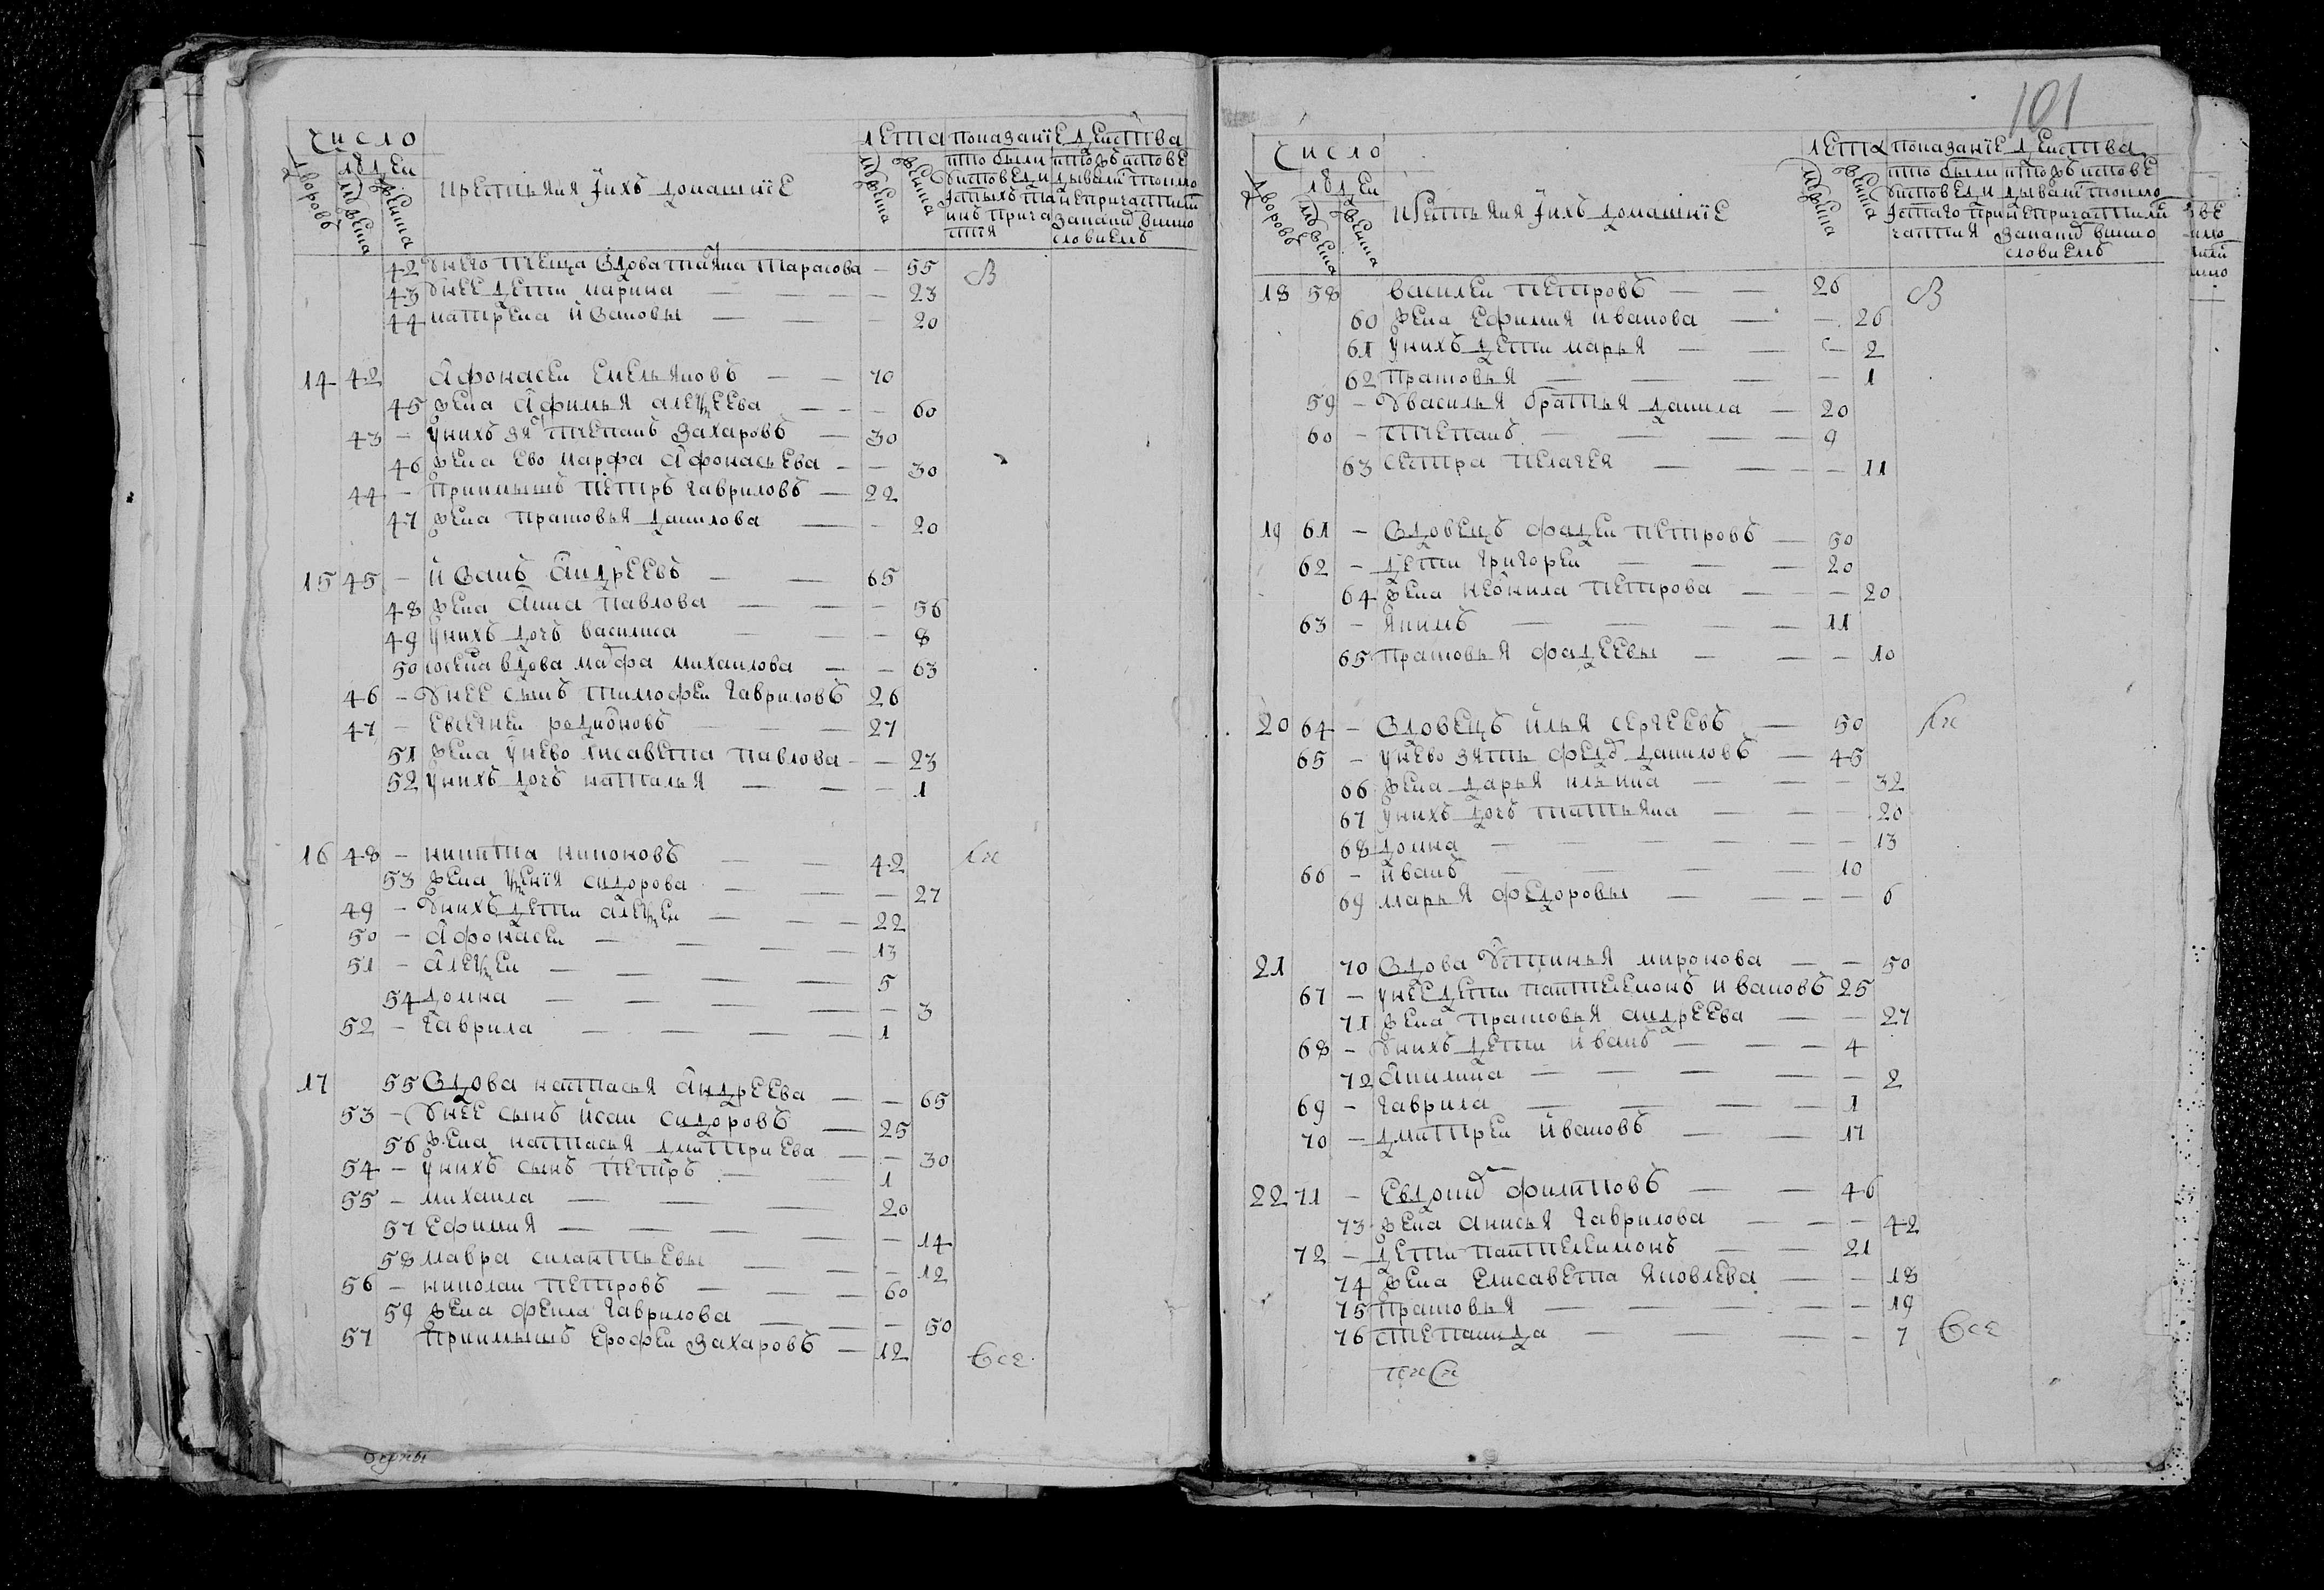 Число
Дворовъ
Людей
Мужеска
Женска
Крестьяня Їихъ домашнїе
лета
Мужеска
Женска
показанїе действа
кто были
кто исповедывались токмо а не причастились
42 Унего теща вдова татьяна тарасова — 55 В
43 Унее дети марина — 23
44 матрена ивановы — 20
14 42 Афонасеи емельяновъ — 70
45 жена афимья алеѯеева — 60
43 — унихъ зя͡т степанъ захаровъ — 30
46 жена ево марфа афонасьева — 30
44 — приимышъ петръ гавриловъ — 22
47 жена прасковья данилова — 20
15 45 — иванъ андреевъ — 65
48 жена анна павлова — 56
49 унихъ дочь василиса — 8
50 вдова ма͡рфа михаилова — 63
46 — Унее сынъ тимофеи гавриловъ 26
47 — евсегнеи родионовъ — 27
51 жена унево лисавета павлова — 23
52 унихъ дочь наталья — 1
16 48 — никита никоновъ — 42
53 жена ѯенїя сидорова — 27
49 — Унихъ дети алеѯеи — 22
50 — Афонасеи — 13
51 — Алеѯеи — 5
54 домна — 3
52 — гаврила — 1
17 55 вдова настасья андреева — 65
53 — Унее сынъ исаи сидоровъ — 25
56 жена настасья дмитриева — 30
54 — унихъ сынъ петръ — 1
55 — михаила — 20
57 ефимия — 14
58 мавра силантьевы — 12
56 — николаи петровъ — 60
59 жена фекла гаврилова — 50
57 приимышъ ерофеи захаровъ — 12 Все
101
Число
Дворовъ
Людей
Мужеска
Женска
Крестьяня Їихъ домашнїе
лета
Мужеска
Женска
показанїе действа
18 58 василеи петровъ — 26 В
60 жена ефимия иванова — 26
61 унихъ дети марья — 2
62 прасковья — 1
59 — Увасилья братья данила — 20
60 — степанъ — 9
63 сестра пелагея — 11
19 61 — вдовецъ фадеи петровъ — 50
62 — дети григореи — 20
64 жена неонила петрова — 20
63 — якимъ — 11
65 прасковья фадеевы — 10
20 64 — вдовецъ илья сергеевъ — 50
65 — унево зять федо͡р даниловъ — 45
66 жена дарья ильина — 32
67 унихъ дочь татьяна — 20
68 домна — 13
66 — иванъ — 10
69 марья федоровы — 6
21 70 вдова Устинья миронова — 50
67 — унее дети пантелемонъ ивановъ 25
71 жена прасковья андреева — 27
68 — Унихъ дети иванъ — 4
72 Акилина — 2
69 — гаврила — 1
70 — дмитреи ивановъ — 17
22 71 — евдоким филиповъ — 46
73 жена анисья гаврилова — 42
72 — дети пантелеимонъ — 21
74 жена елисавета яковлева — 18
75 прасковья — 19
76 степанида — 7 Все